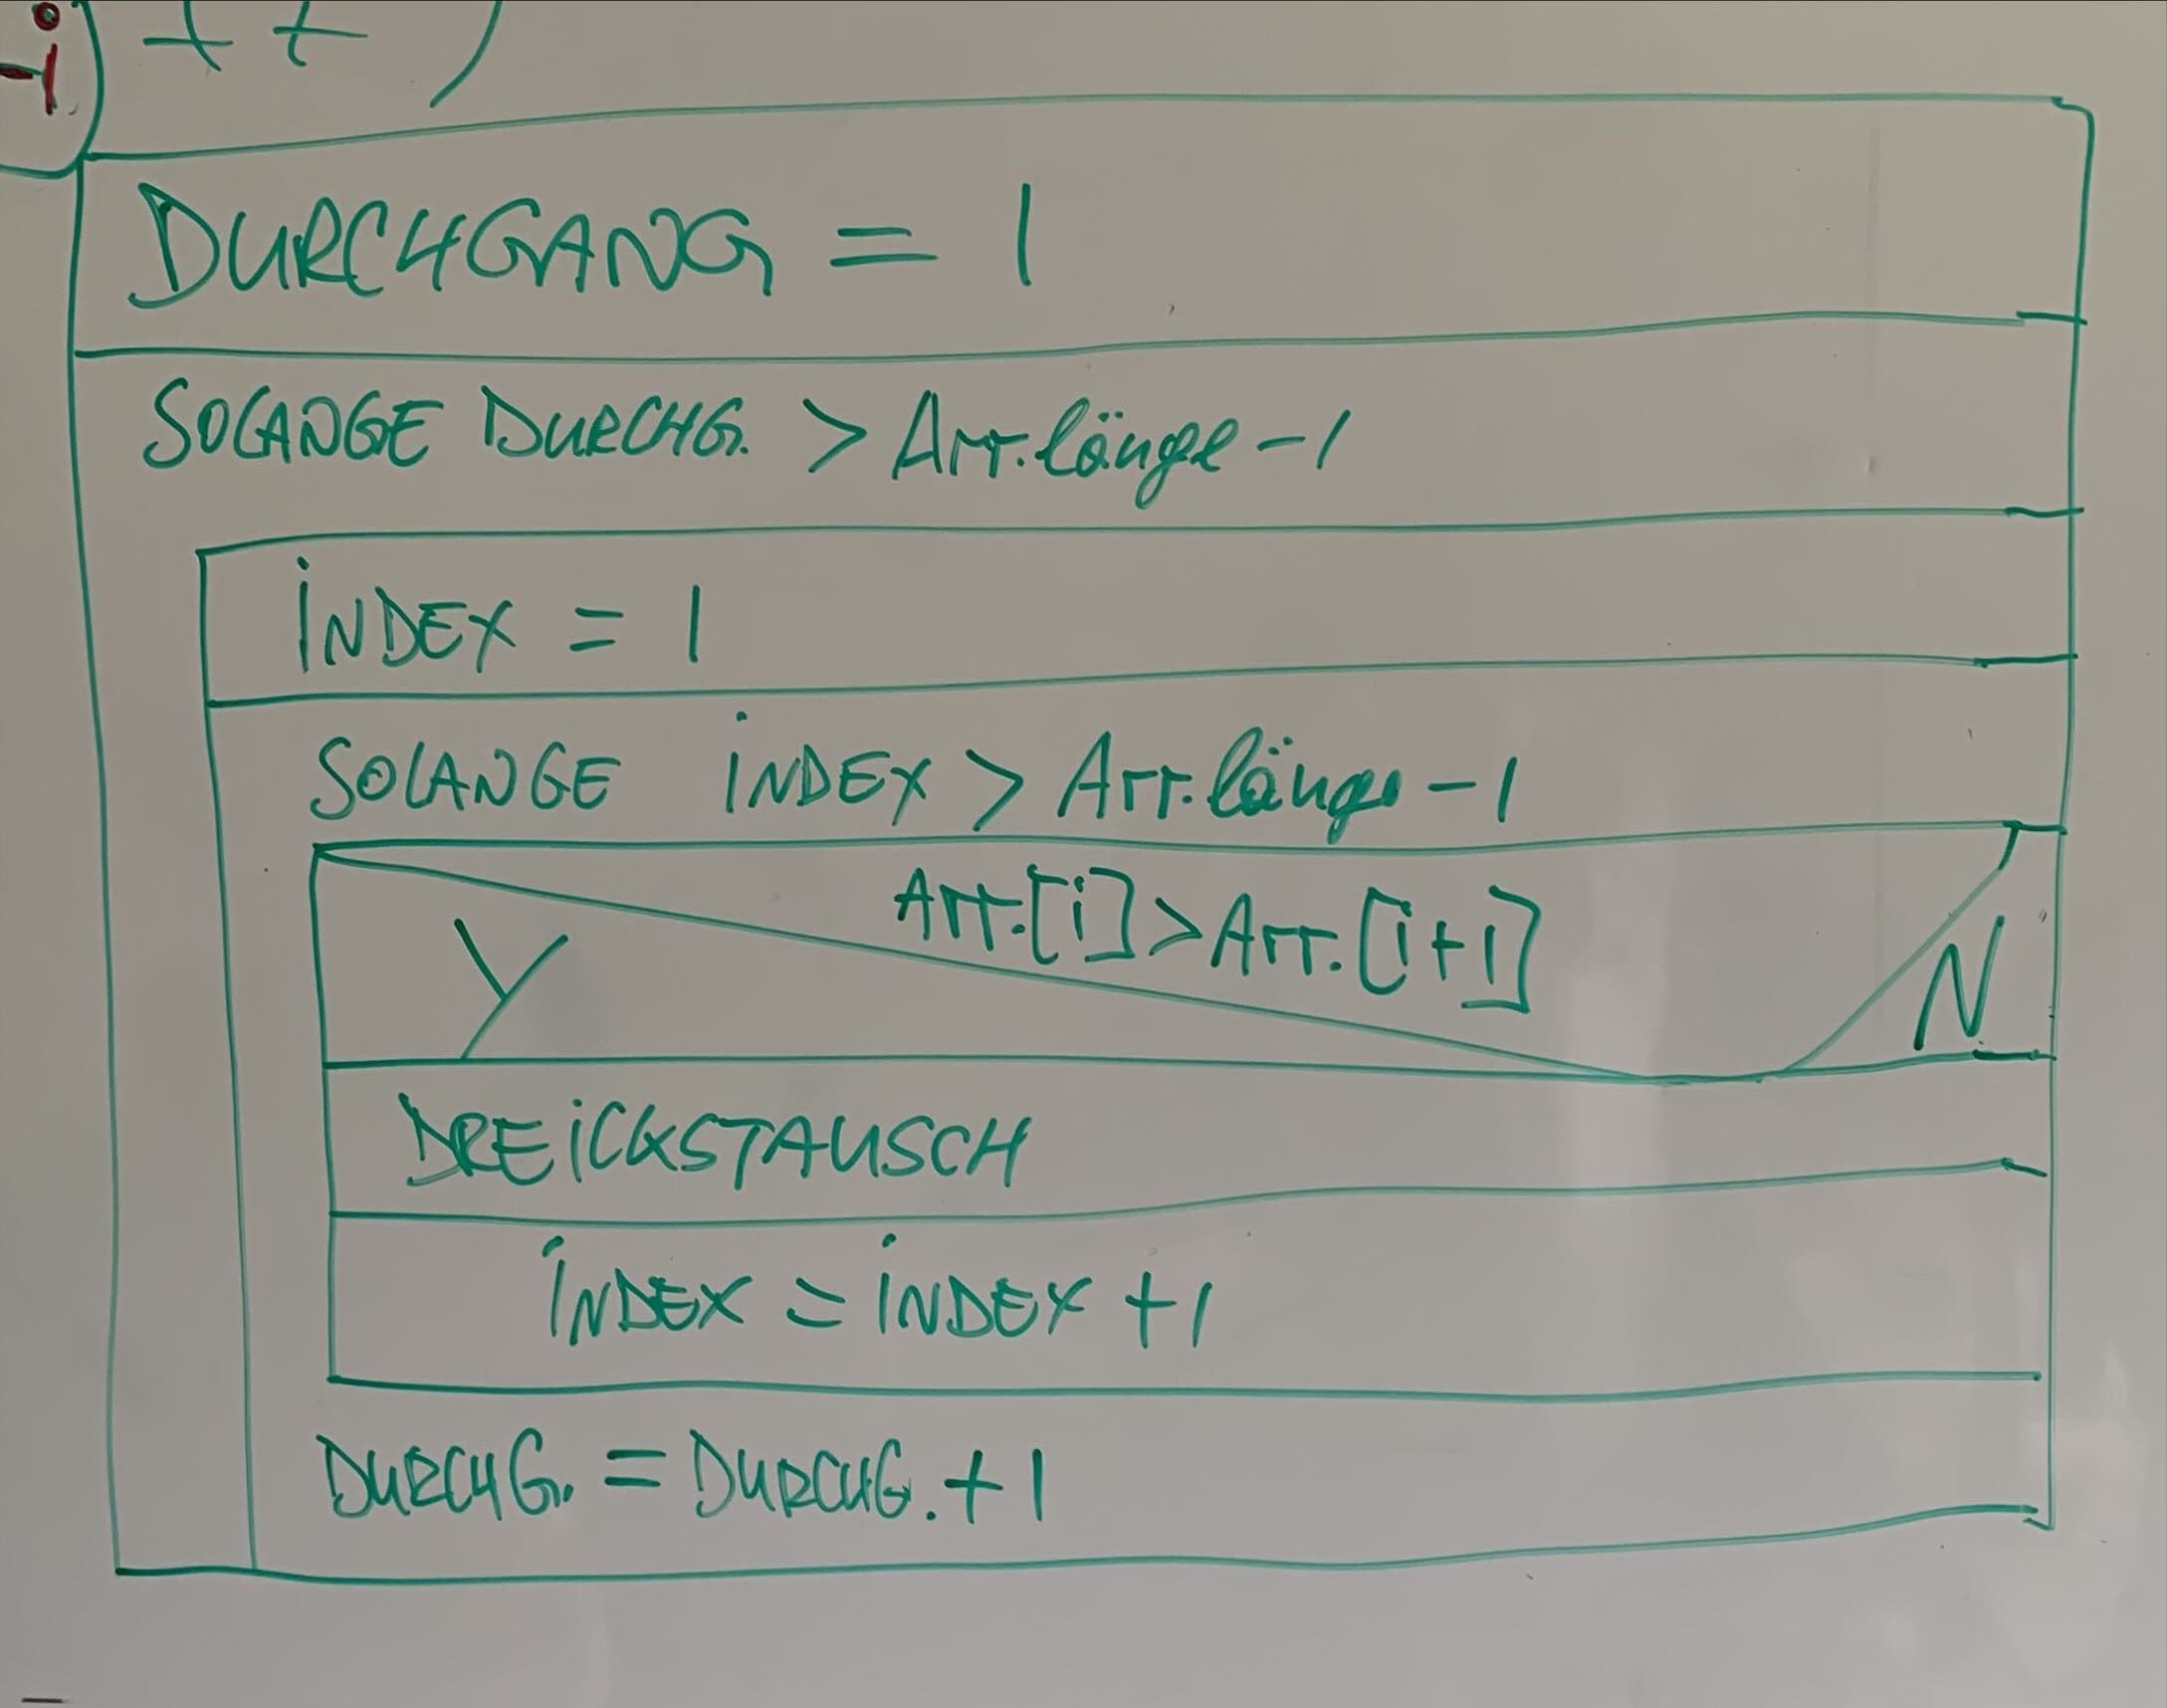 ++)
DURCHGANG = 1
SOLANGE DURCHG. > Arr.länge -1
INDEX = 1
SOLANGE INDEX > Arr.länge -1
Arr.[i]>Arr.[i+1]
Y N
DREICKSTAUSCH
INDEX = INDEX +1
DURCHG. = DURCHG. +1